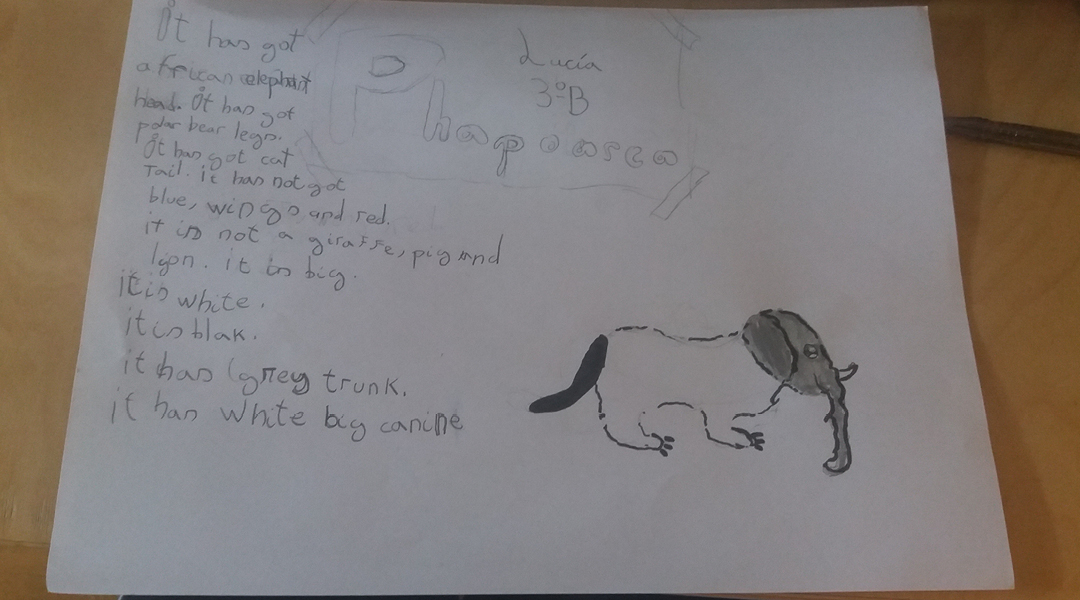 It has got
african elephant
head. It has got
polar bear legs.
It has got cat
Tail. it has not got
blue, wings and red.
it is not a giraffe, pig and
lion. it is big.
it is white.
it is blak.
it has grey trunk.
it has white big canine
Lucía
3ºB